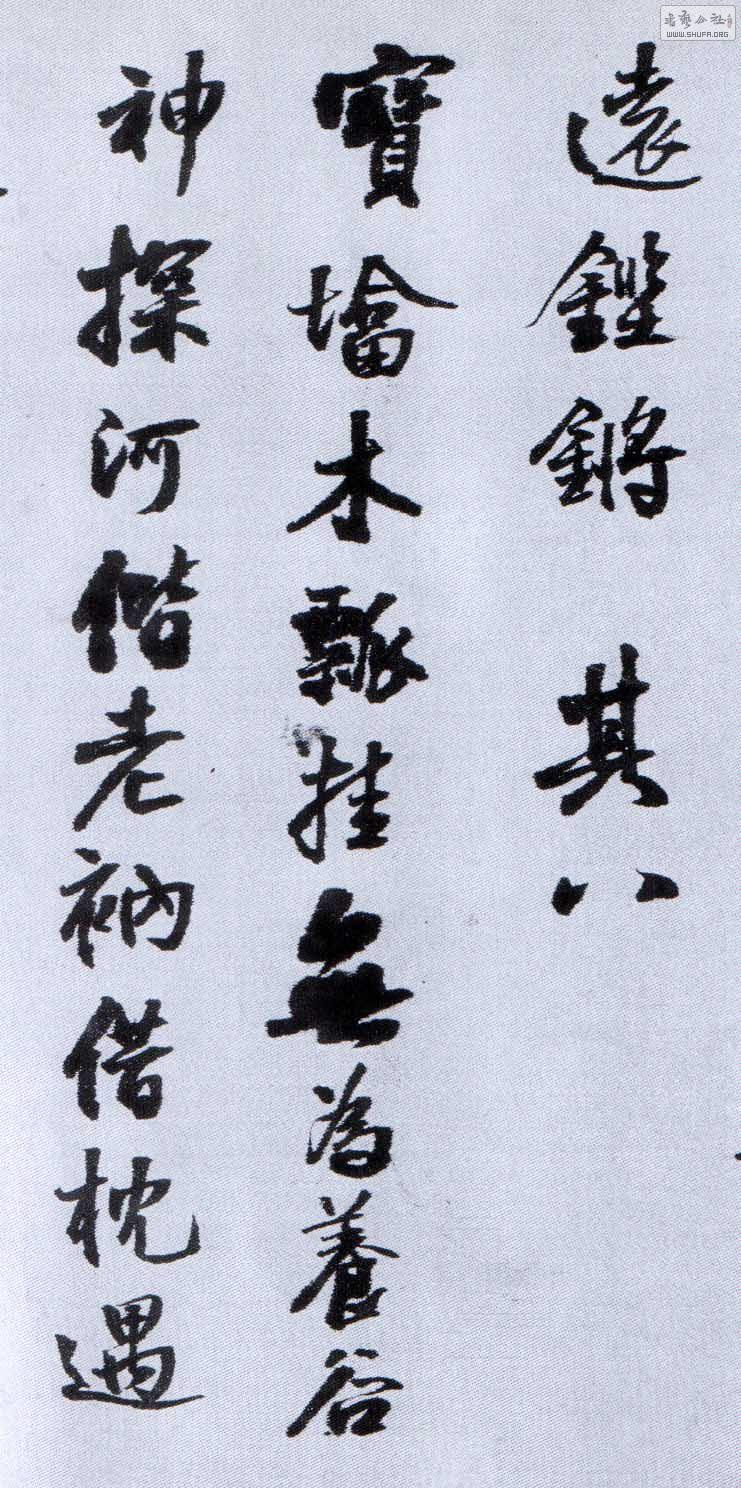 遠鏗鏘 其八
寶墖木瓢挂無為養谷
神探河偕老衲借枕遇
WWW.SHUFA.ORG